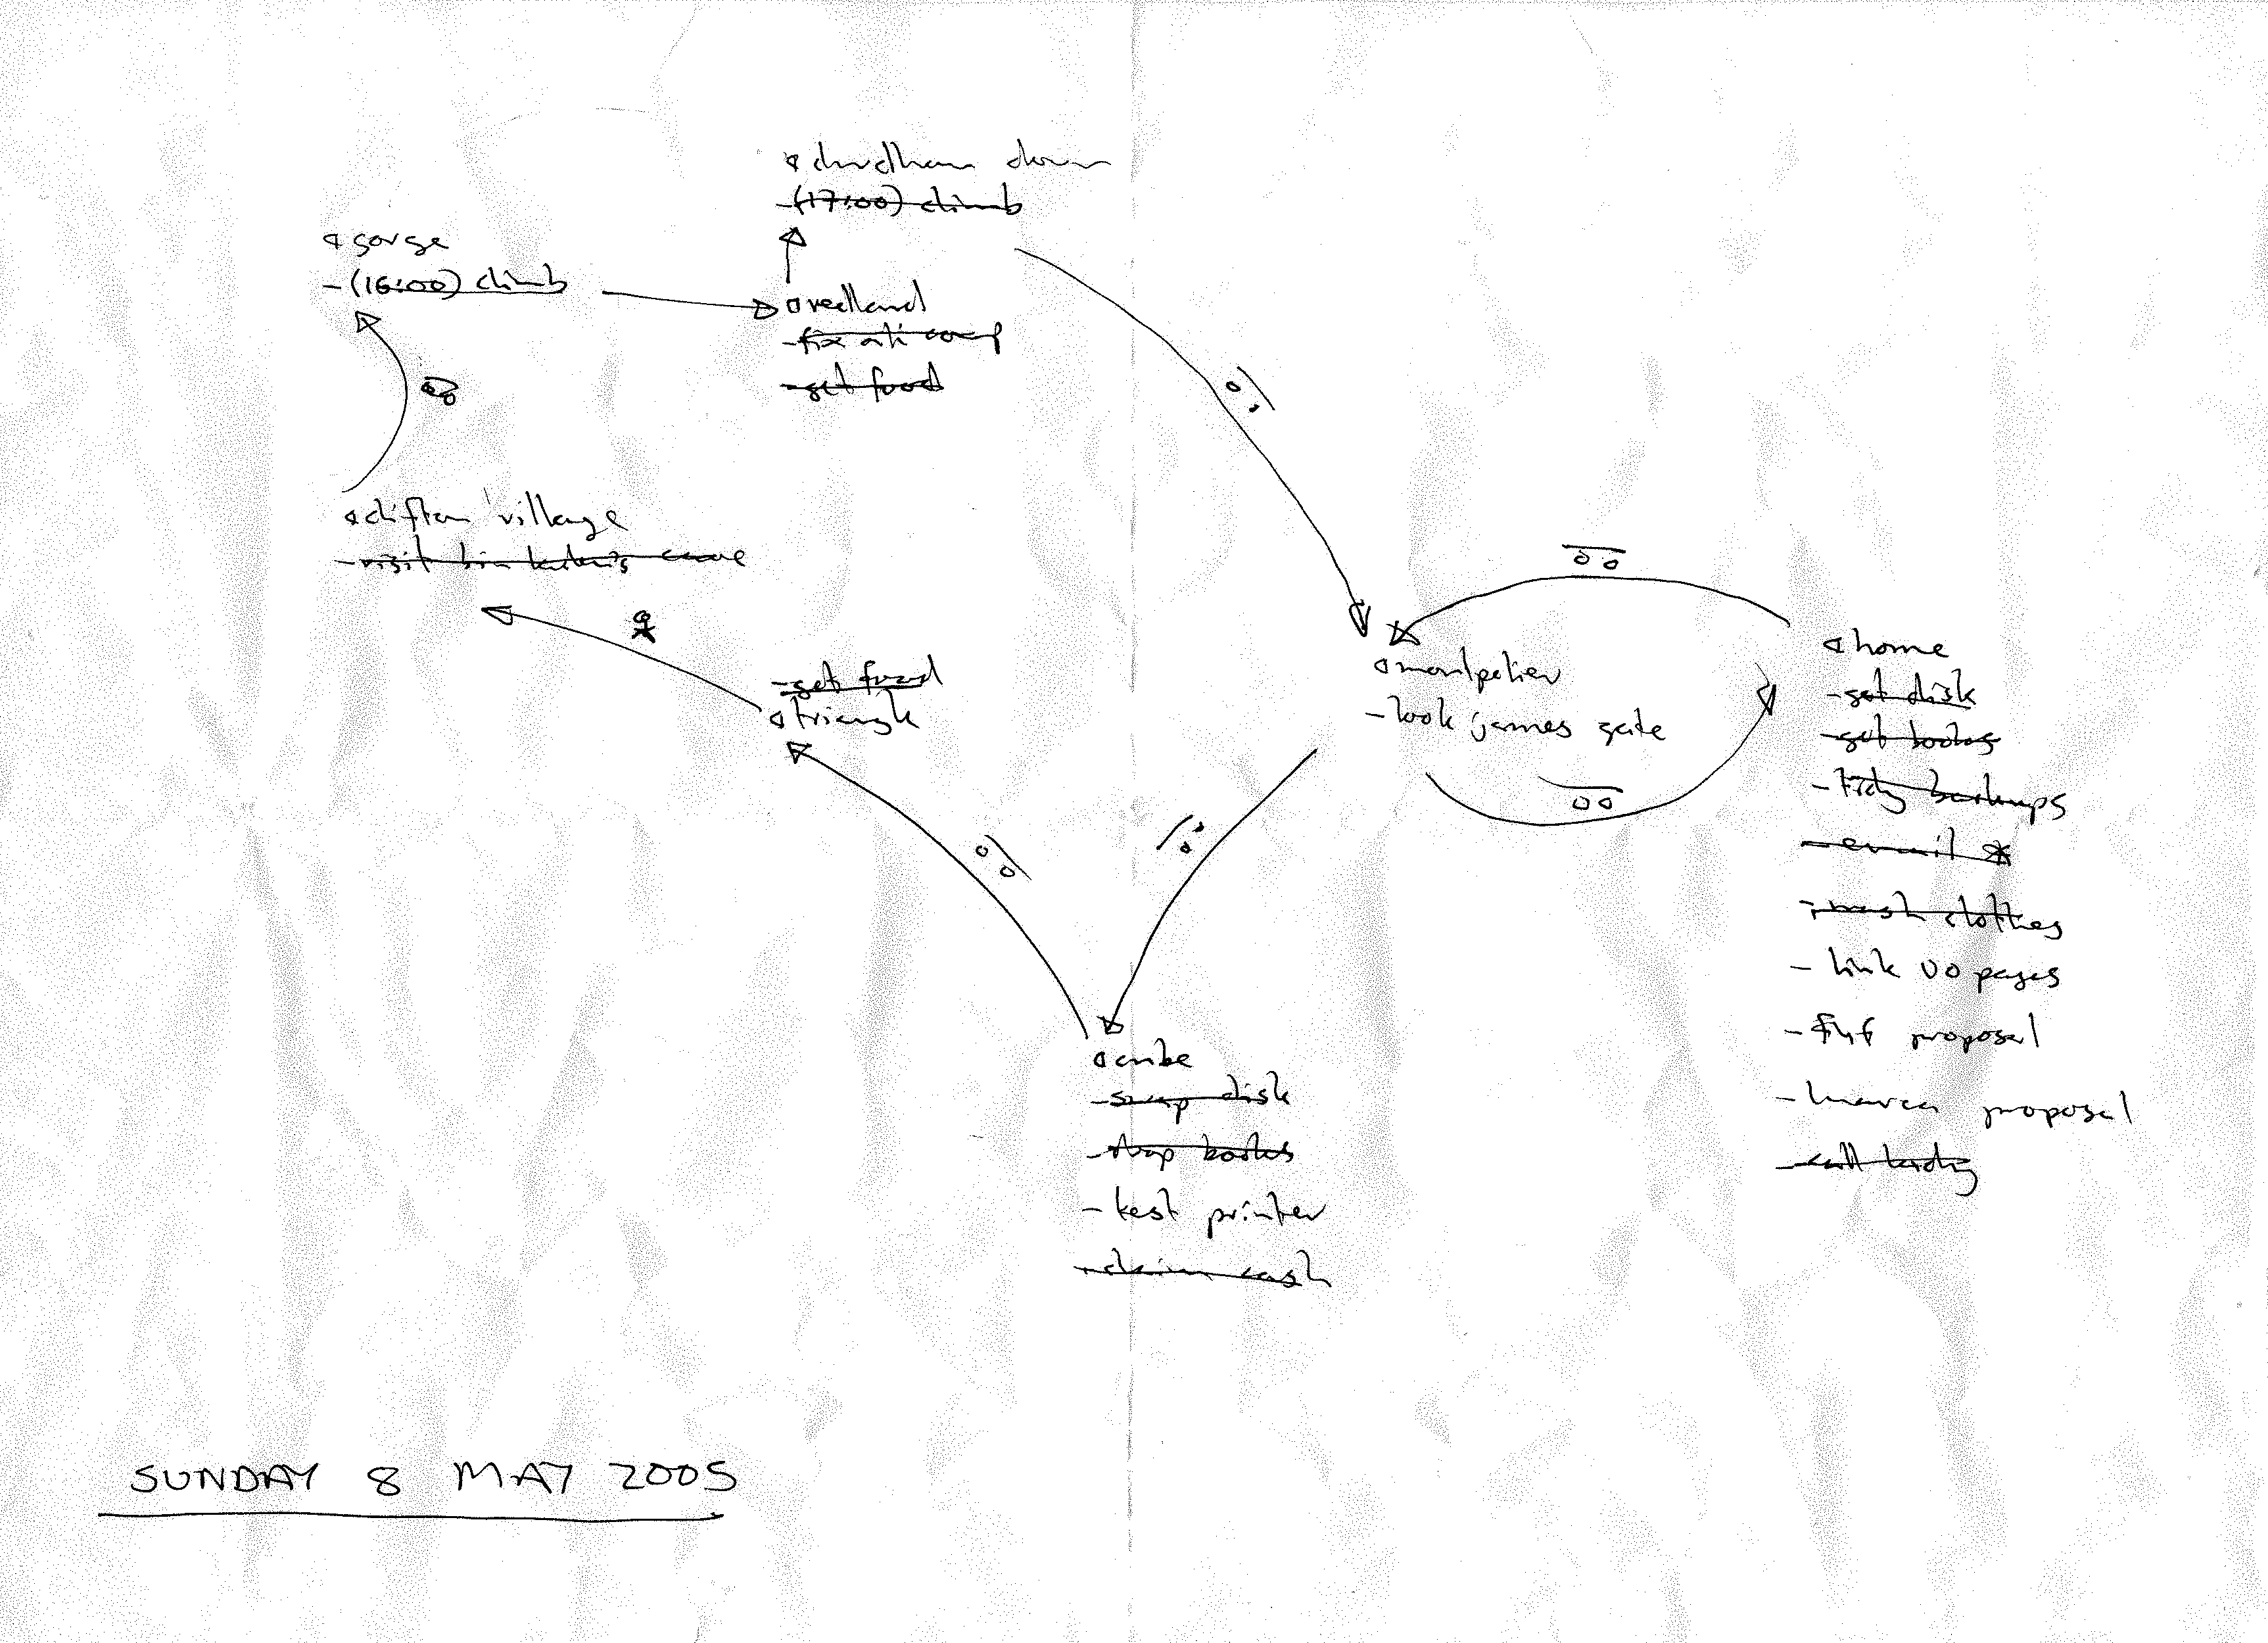 durdham down
-(17:00) climb
gorge
-(16:00) climb
redland
-fix ati comp
-get food
clifton village
-visit
-get food
triangle
montpelier
-look james gate
home
-get disk
-get books
-tidy backups
-email *
-wash clothes
-link vo pages
- proposal
- proposal
-call
cube
-swap disk
-drop books
-test printer
-claim cash
SUNDAY 8 MAY 2005